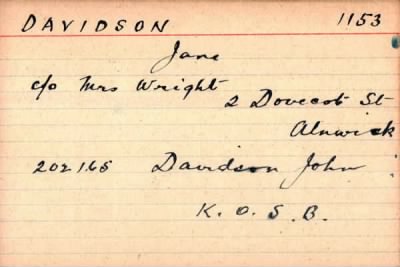 DAVIDSON 1153
Jane
c/o Mrs Wright
2 Dovecot St
Alnwick
202165 Davidson John
K. O. S. B.